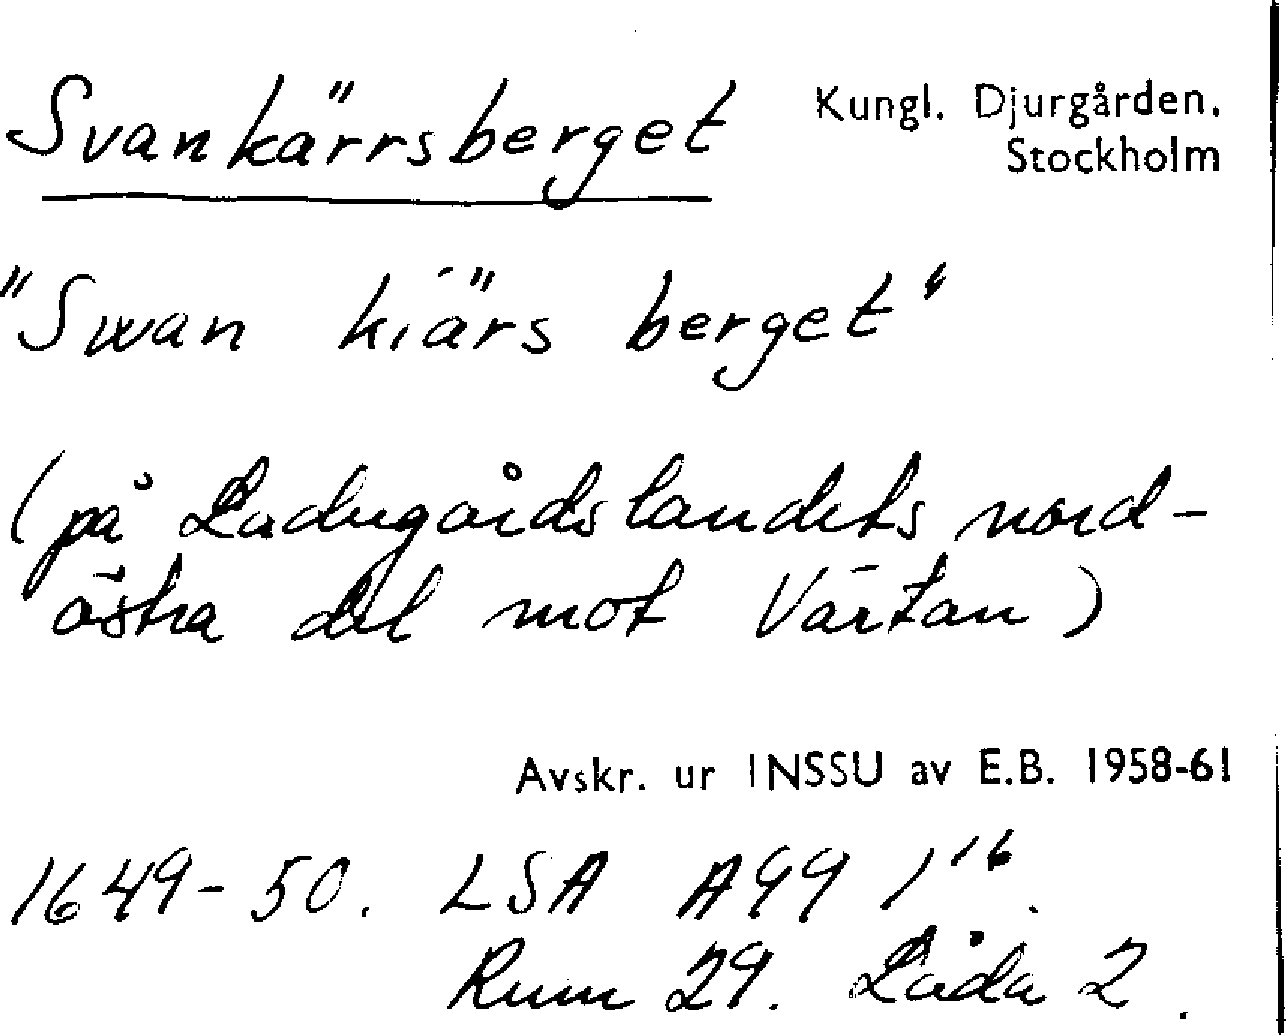 Svankärrsberget
Kungl. Djurgården.
Stockholm
"Swan kiärs berget"
(på Ladugårdslandets nord-
östra del mot Värtan)
Avskr. ur INSSU av E.B. 1958-61
1649-50. LSA A99 1¹⁶.
Rum 29. Låda 2.